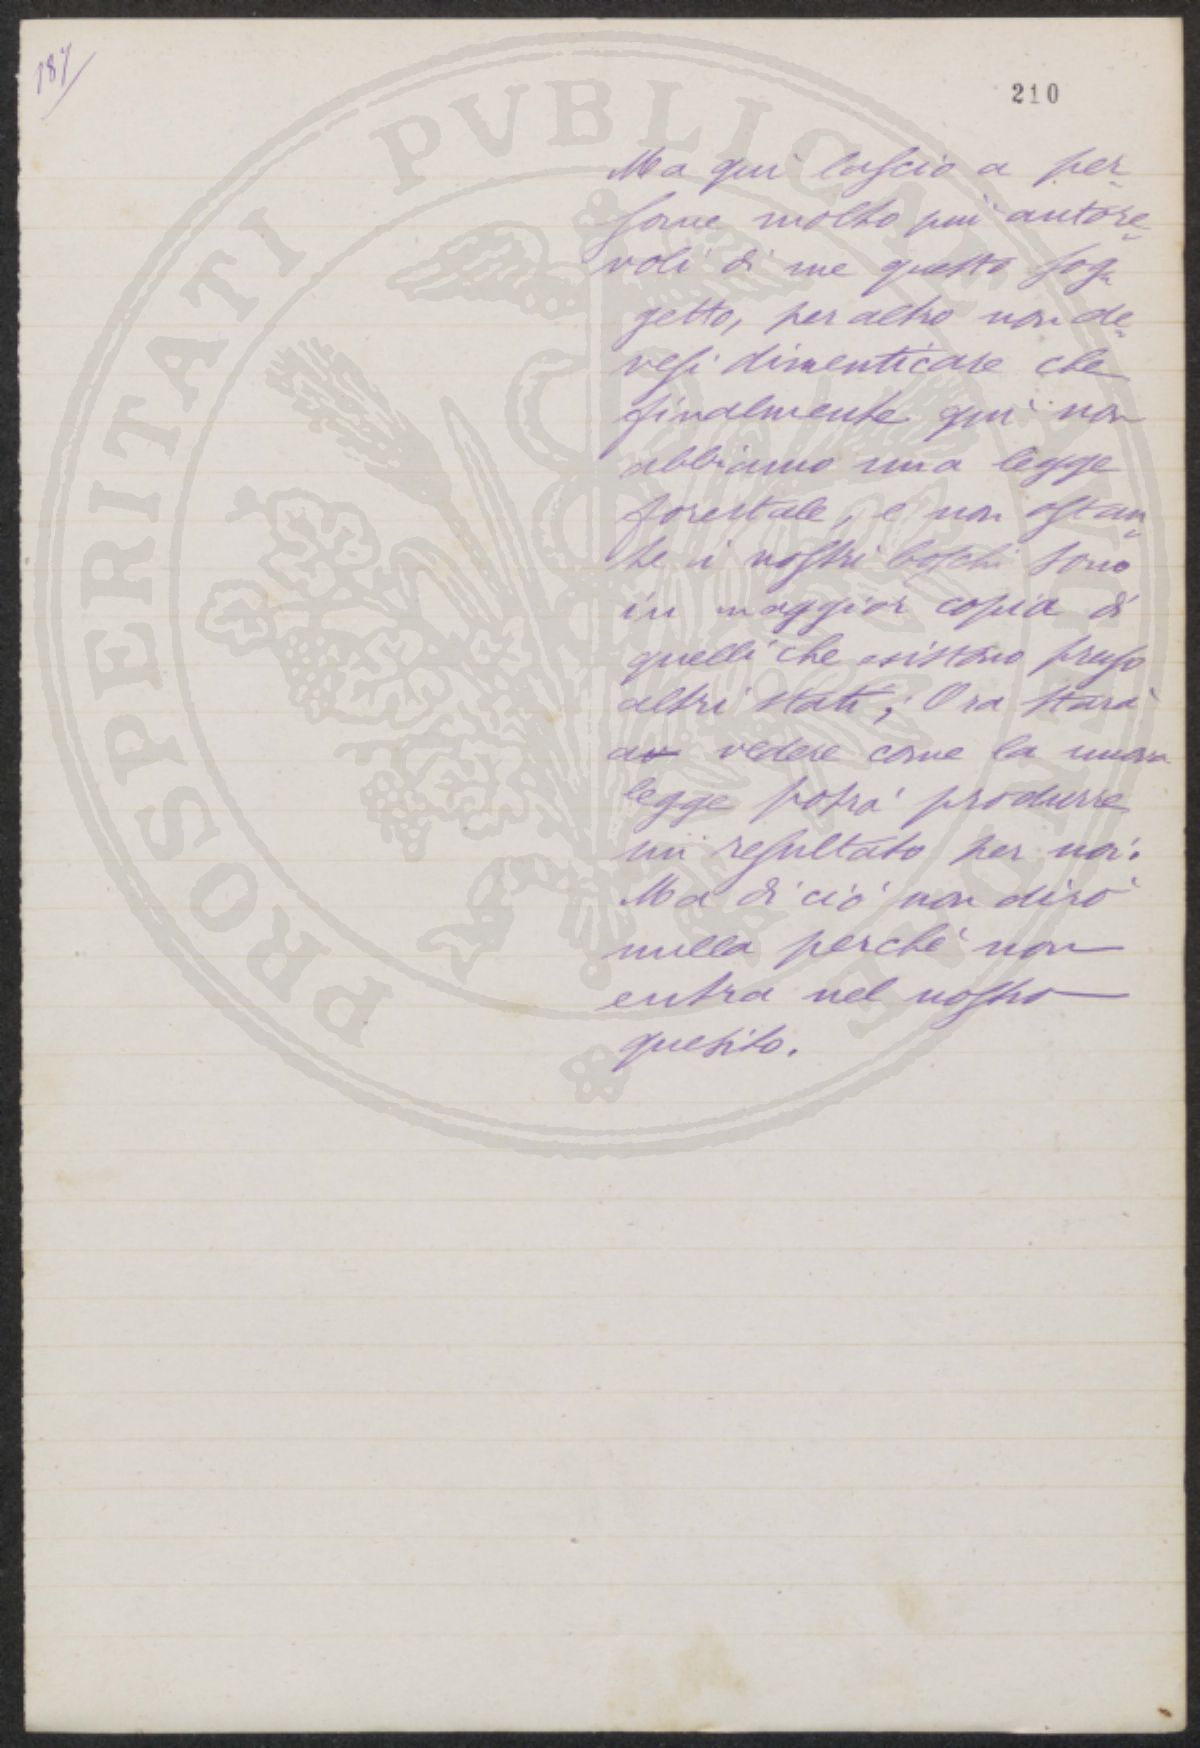 187
210
Ma qui lascio a per-
sone molto più autore-
voli di me questo sog-
getto, per altro non de-
vesi dimenticare che
finalmente qui non
abbiamo una legge
forestale, e non ostan-
te i nostri boschi sono
in maggior copia di
quelli che esistono presso
altri stati; Ora starà
a vedere come la nuova
legge potrà produrre
un resultato per noi.
Ma di ciò non dirò
nulla perchè non
entra nel nostro
quesito.
PROSPERITATI PVBLICAE